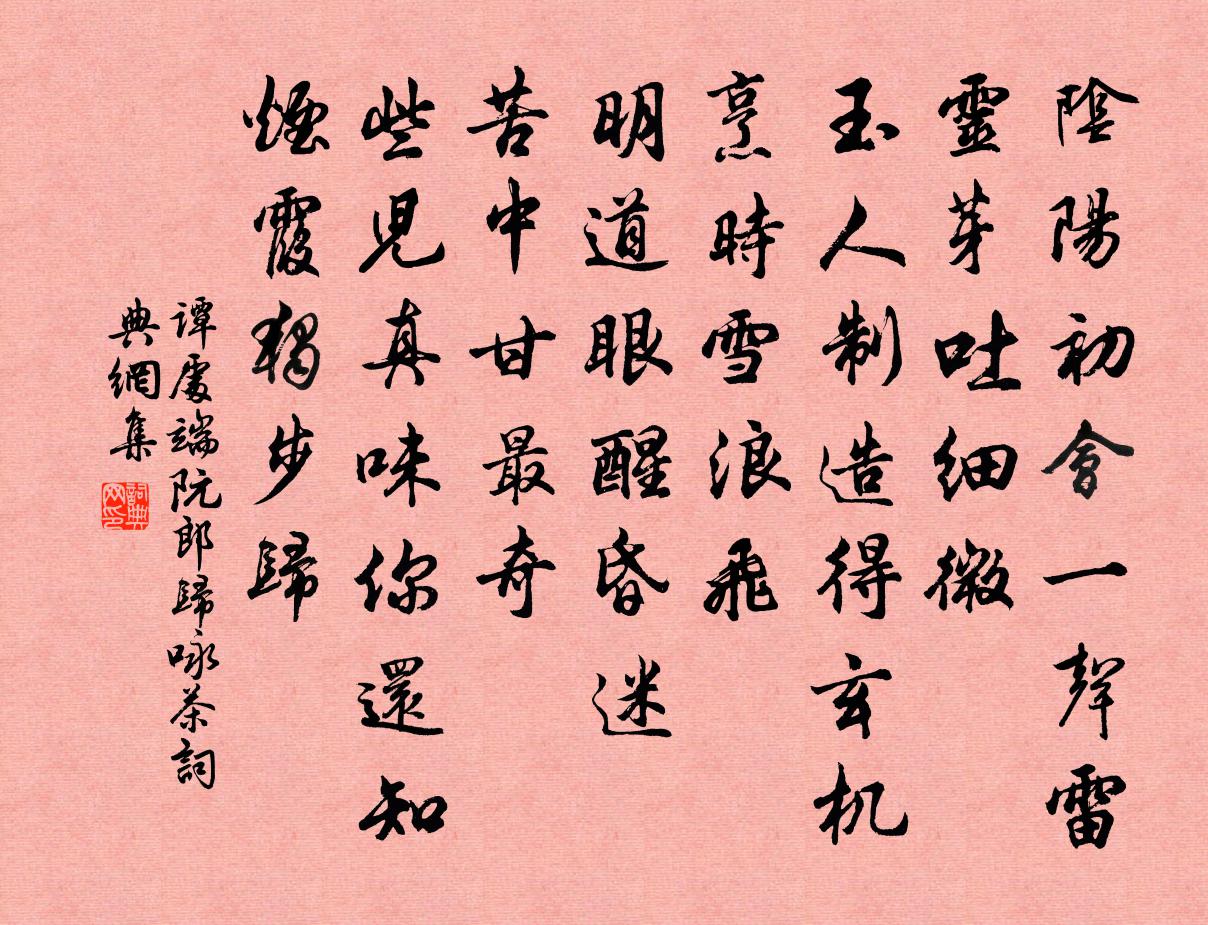 陰陽初會一聲雷
靈芽吐細微
玉人制造得玄机
烹時雪浪飛
明道眼醒昏迷
苦中甘最奇
些児真味你還知
煙霞獨步歸
譚處端阮郎歸咏茶詞
典網集
詞典网印